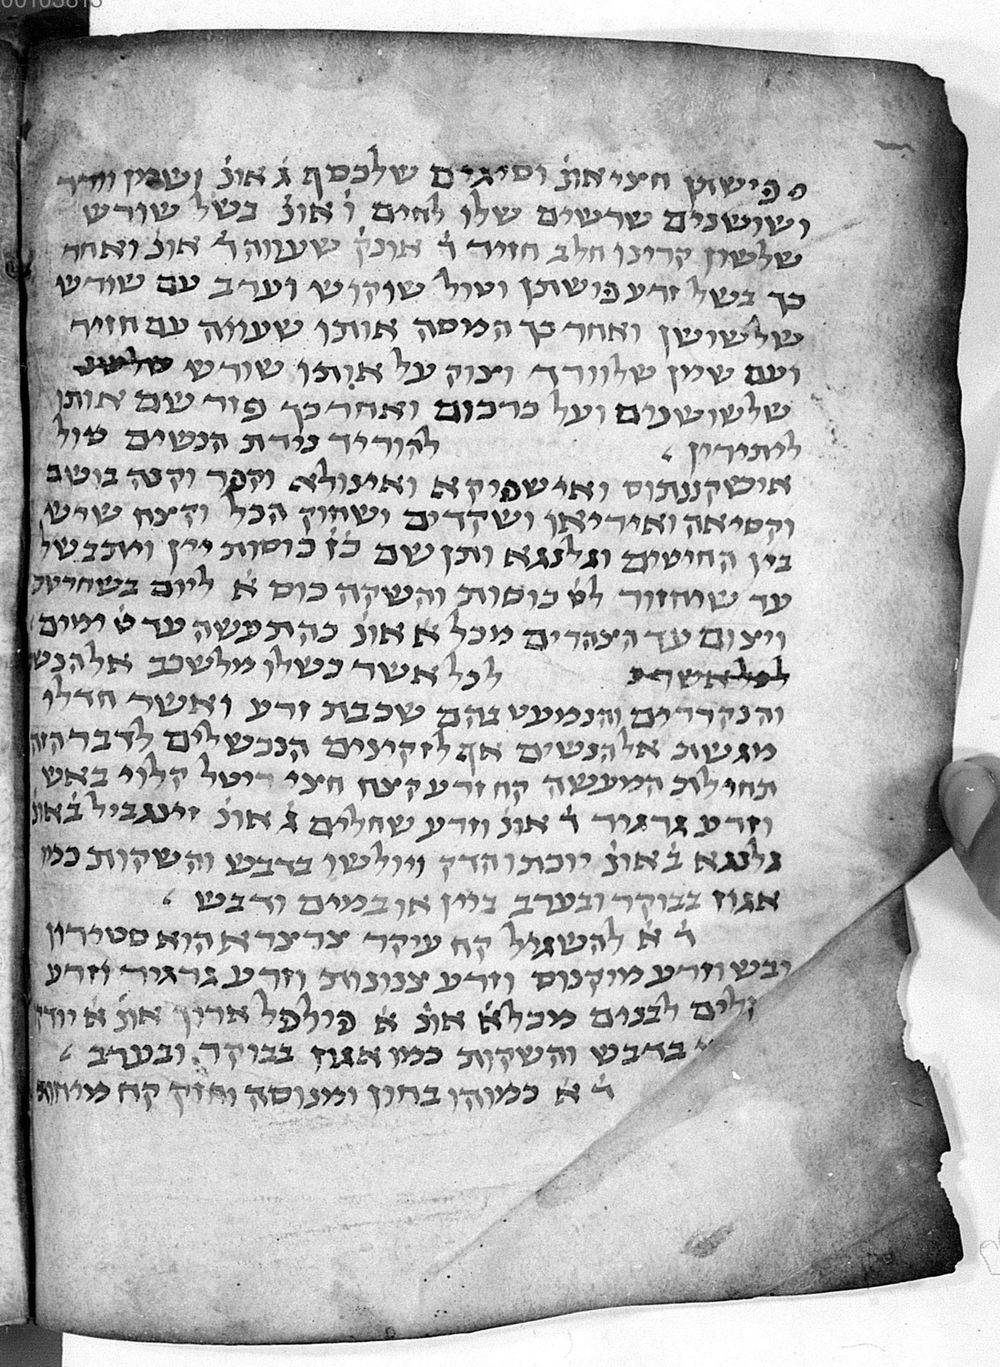 פישזין חצי אונ׳ וסיגים שלכסף ג׳ אונ׳ ושמן וורד
ושושנים שרשים שלו לחים ו׳ אונ׳ בשל שורש
שלשושן קרוגו חלב חזיר ד׳ אונק׳ שעווה ד׳ אונ׳ ואחר
כך בשל זרע פישתן וטול שוקוש וערב עם שורש
שלשושן ואחר כך המסה אותו שעווה עם חזיר
ועם שמן שלוורד וצוק על אותו שורש
שלשושנים ועל כרכום ואחר כך פזר שם אותן
ליתירין להוריד נידת הנשים טול
אישקננתוס ואישפיקא ואינולא וקפר וקנה בושם
וקסיאה ואיריאו ושקדים ושחוק הכל וקצח שיש
בין החיטים וגלנגא ותן שם כ״ז כוסות יין ויתבשל
עד שיחזור לט׳ כוסות והשקה כוס א׳ ליום בשחרית
ויצום עד הצהרים מכל א׳ אונ׳ כה תעשה עד ט׳ ימים
לכל אשר לכל אשר כשלו מלשכב אל הנש
והנקררים והנמעט בהם שכבת זרע ואשר חדלו
מגשת אל הנשים אף לזקינים הנכשלים לדבר הזה
תחילת המעשה קח זרע קצח חצי ריטל קלוי באש
וזרע גרגיר ד׳ אונ׳ וזרע שחלים ג׳ אונ׳ זינגביל ב׳ אונ׳
גלנגא ב׳ אונ׳ יוכתו הדק ויולשו בדבש והשקות כמו
אגוז בבוקר ובערב ביין או במים ודבש
ד׳ א׳ להשגיל קח עיקר צרצרא הוא סטירון
ובש וזרע מוקנוס וזרע צנונות וזרע גרגיר וזרע
לים לבנים מכל א׳ אונ׳ א׳ פילפל ארוך אונ׳ א׳ יודק
בדבש והשקות כמו אגוז בבוקר ובערב
ד׳ א׳ כמוהו בחון ומנוסה וחזק קח